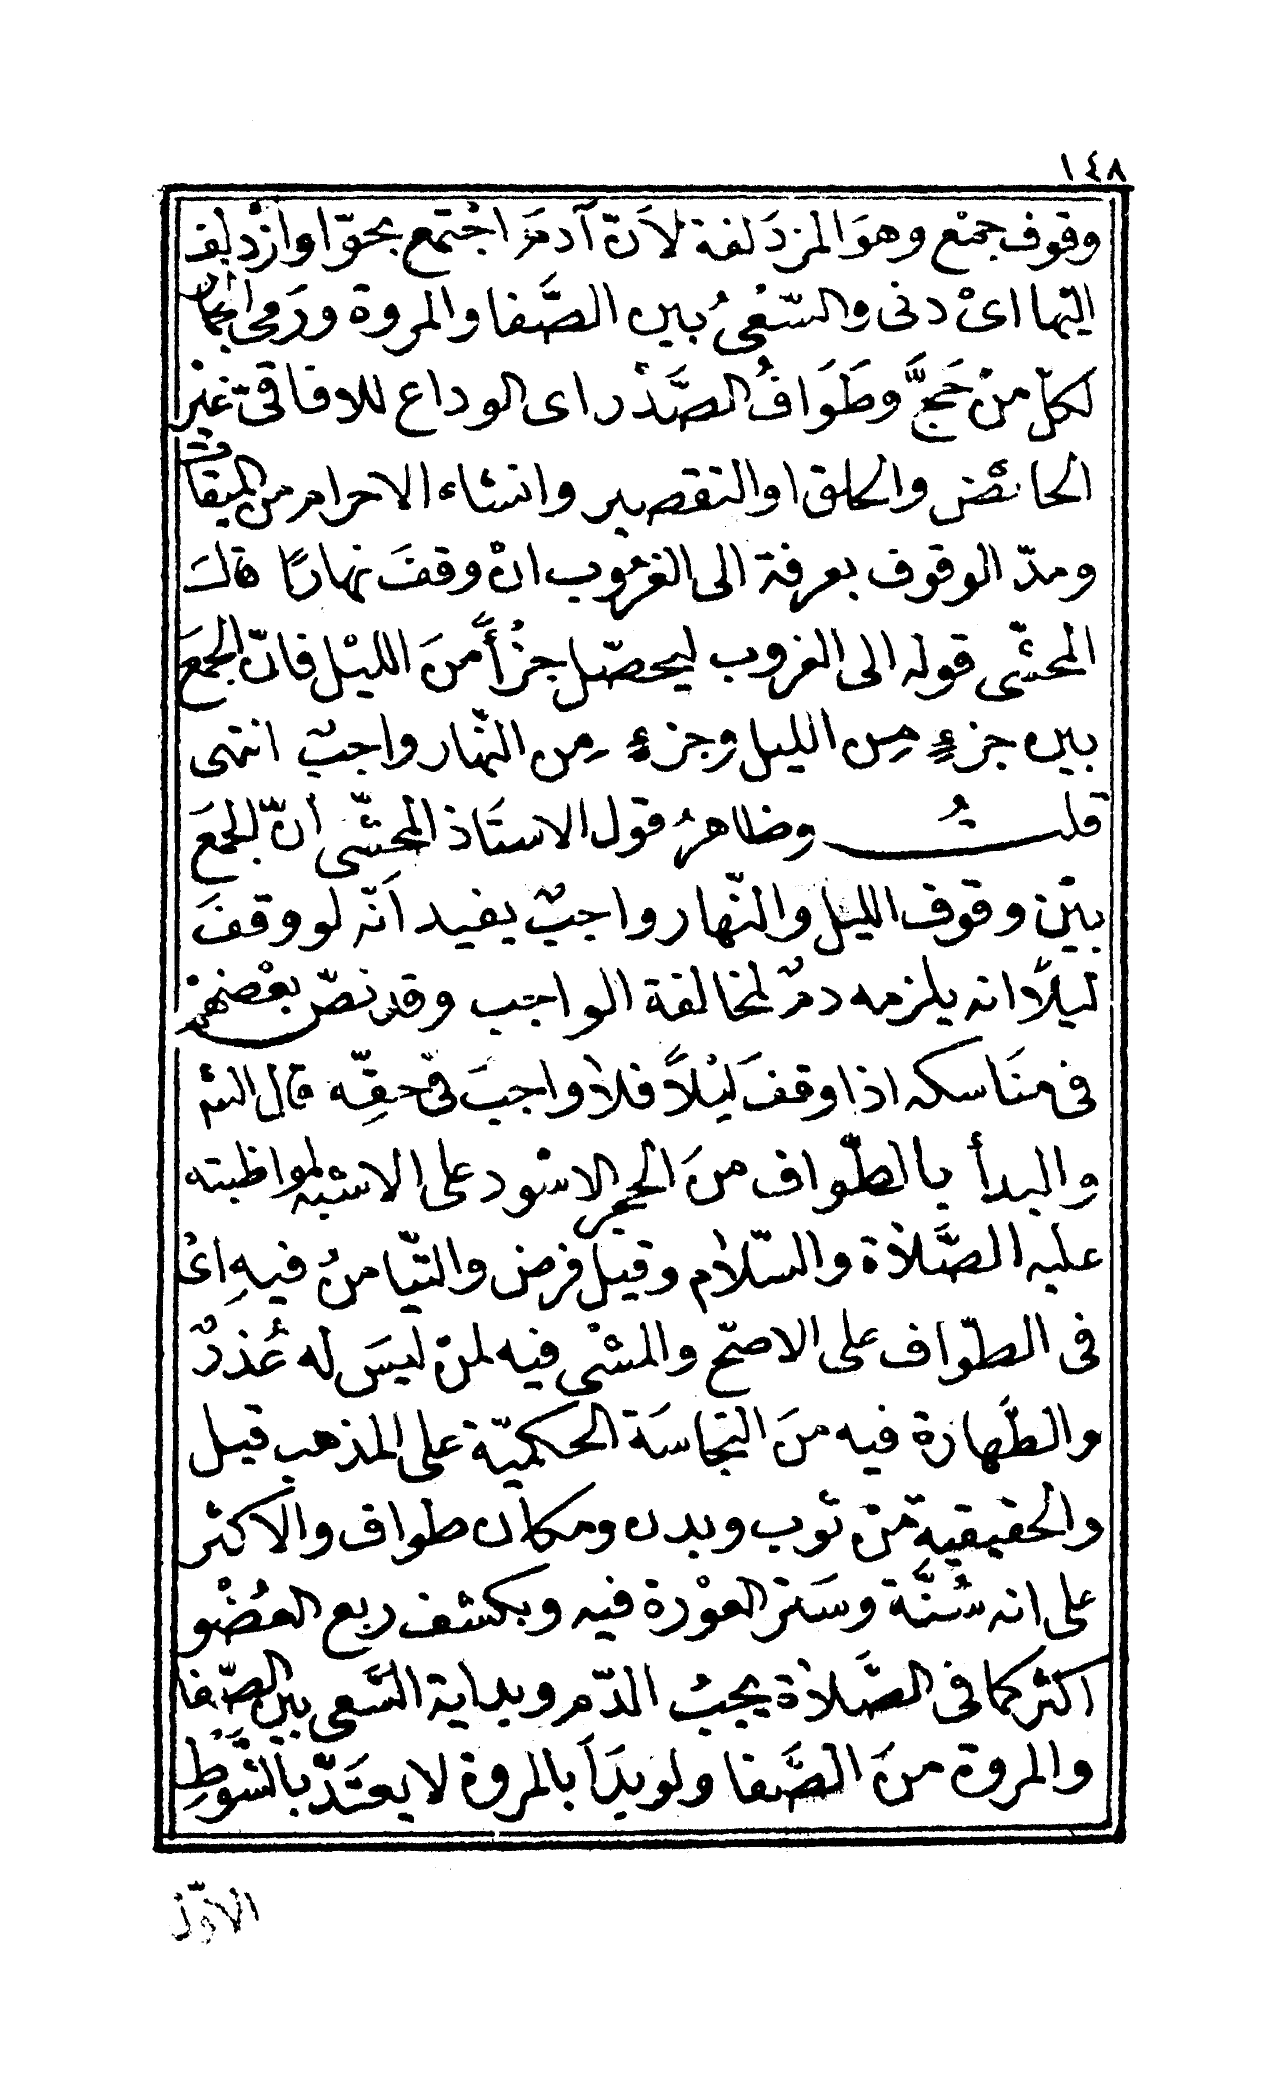 ١٤٨
وقوف جمْع وهوَ المزدَلفة لاَنّ آدمَ اجْتمع بحوّا وازْدلف
اليْها اىْ دنى والسّعْىُ بين الصَّفا والمروة ورَمى الجمار
لكلّ منْ حَجَّ وطَوَافُ الصَّدْر اى الوداع للافاقىّ غيْر
الحائض والحلق او التقصير وانشاء الاحرام من الميقات
ومدّ الوقوف بعرفة الى الغرُوب انْ وقفَ نهارًا قالَ
المحشّى قوله الى الغروب ليحصّل جزْأً منَ الليْل فانّ الجمعَ
بين جزءٍ مِن الليل وجزءٍ مِن النّهار واجبٌ انتهى
قلتُ وظاهرُ قول الاستَاذ المحشّى أنّ الجمعَ
بيْن وقوف الليل والنّهار واجبٌ يفيد اَنّه لو وقفَ
ليلاً انه يلزمه دمٌ لمخالفة الواجب وقد نصّ بعْضهمْ
فى منَاسكه اذا وقفَ ليْلاً فلا واجبَ فى حقّه قال الشـ
والبدأ بالطّواف منَ الحجر الاسْود على الاشبه لمواظبته
عليه الصَّلاة والسّلام وقيل فرض والتّيامنُ فيهِ اىْ
فى الطّواف على الاصحّ والمشْى فيه لمنْ ليسَ له عُذرٌ
والطَّهارة فيه منَ النّجاسَة الحكميّة على المذهب قيل
والحقيقية منْ ثوب وبدن ومكان طواف والاكثر
على انه سُنَّة وسَتر العوْرة فيه وبكشف ربع العُضْو
اكثر كما فى الصَّلاة يجبُ الدّم وبداية السَّعى بين الصّفا
والمروة منَ الصَّفا ولو بدَأَ بالمروة لا يعتَدّ بالشَّوْطِ
الاوّل